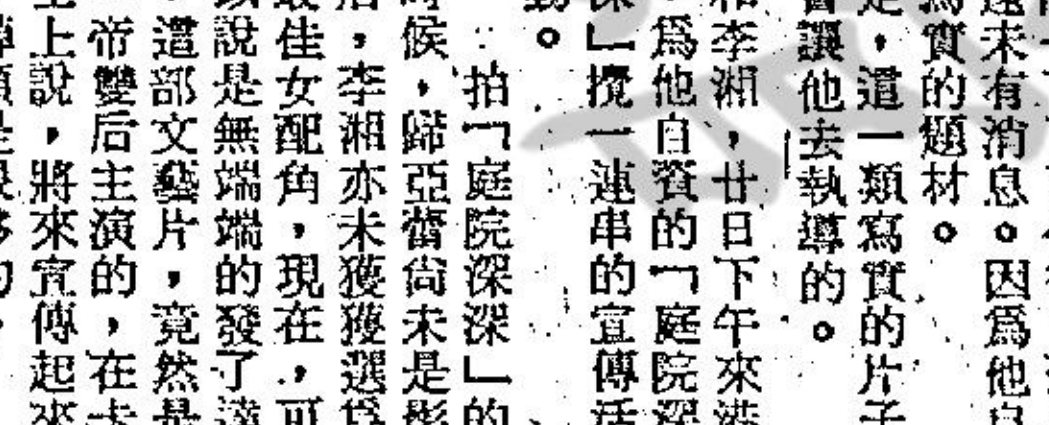 未有消息。因爲他自
寫實的題材。
是,這一類寫實的片子
會讓他去執導的。
和李湘,廿日下午來港
,爲他自資的「庭院深
深」攪一連串的宣傳活
動。
拍「庭院深深」的
時候,歸亞蕾尚未是影
后,李湘亦未獲獲選爲
最佳女配角,現在,可
以說是無端端的發了達
,這部文藝片,竟然是
帝雙后主演的,在卡
上說,將來宣傳起來